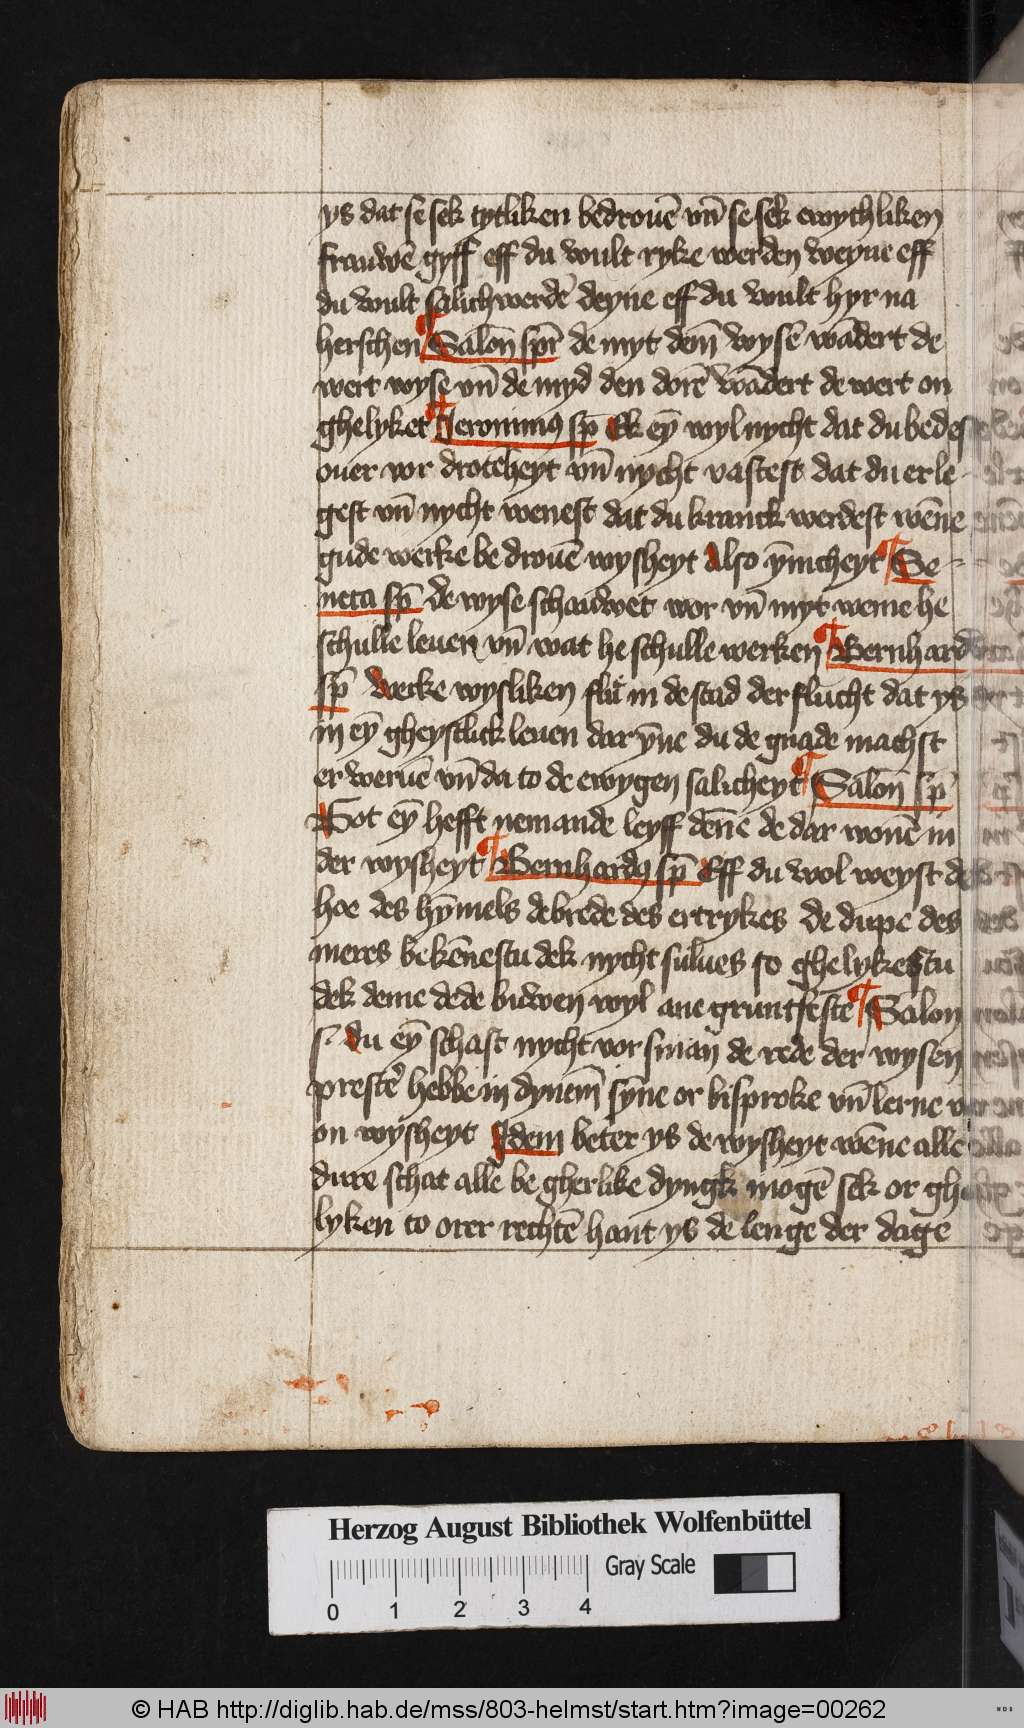 ys dat se sek tytliken bedrouē vn̄ se sek ewychliken
frauwē gyff eff du wult ryke werden weyne eff
du wult salich werdē deyne eff du wult hyr na
herschen ¶ Salon̄ spr̄ de myt dem̄ wysē wādert de
wert wyse vn̄ de myd den dorē wādert de wert on
ghelyket ¶ Jeronimꝰ sp̄ Ek eȳ wyl nycht dat du bedes
ouer vor drotēheyt vn̄ nycht vastest dat du er le
gest vn̄ nycht wenest dat du kranck werdest wēne
gude werke be drouē wysheyt Also ȳnicheyt ¶ Se-
neca sp̄ de wyse schauwet wor vn̄ myt weme he
schulle leuen vn̄ wat he schulle werken ¶ Bernhardꝰ
sp̄ werke wysliken flu in de stad der flucht dat ys
in eȳ gheystlick leuen dar ȳne du de gnade machst
er weruē vn̄ da to de ewygen salicheyt ¶ Salon̄ sp̄
Got eȳ hefft nemande leyff dēne de dar wonē in
der wysheyt ¶ Bernhardꝰ sp̄ Eff du wol weyst de
hoe des hȳmels de brede des ertrykes de dupe des
meres bekēnestu dek nycht sulues so ghelykestu
dek deme dede buwen wyl ane gruntfeste ¶ Salon
s. du eȳ schast nycht vor smān de rede der wysen
prestē hebbe in dynem̄ sȳne or bisproke vn̄ lerne v
on wysheyt Idem beter ys de wysheyt wēne alle
dure schat alle be gherlike dyngk mogē sek or gh
lyken to orer rechtē hant ys de lenge der dage
Herzog August Bibliothek Wolfenbüttel
Gray Scale
0 1 2 3 4
© HAB http://diglib.hab.de/mss/803-helmst/start.htm?image=00262